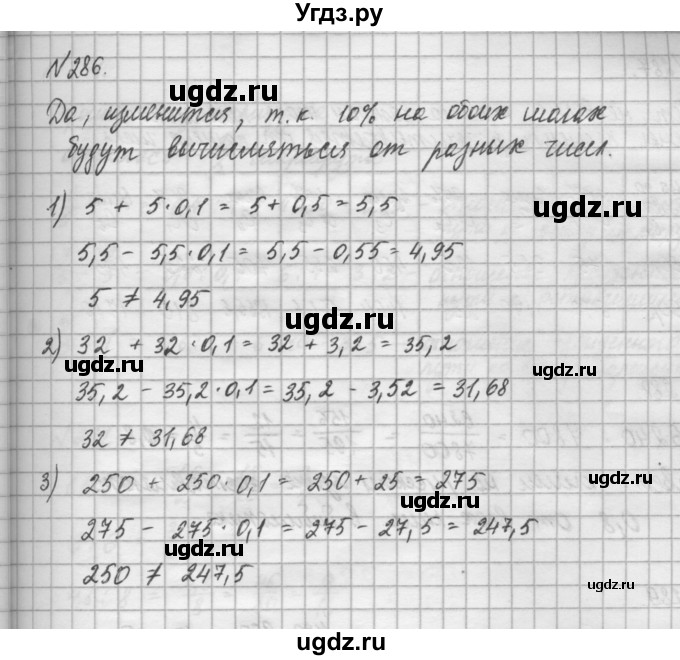 Угдз.ру
№286.
ugdz.ru
Да, изменится, т.к. 10% на обоих шагах
будут вычисляться от разных чисел.
1) 5 + 5·0,1 = 5 + 0,5 = 5,5
ugdz.ru
5,5 - 5,5·0,1 = 5,5 - 0,55 = 4,95
5 ≠ 4,95
ugdz.ru
2) 32 + 32·0,1 = 32 + 3,2 = 35,2
ugdz.ru
35,2 - 35,2·0,1 = 35,2 - 3,52 = 31,68
32 ≠ 31,68
3) 250 + 250·0,1 = 250 + 25 = 275
ugdz.ru
275 - 275·0,1 = 275 - 27,5 = 247,5
ugdz.ru
250 ≠ 247,5
ugdz.ru
ugdz.ru